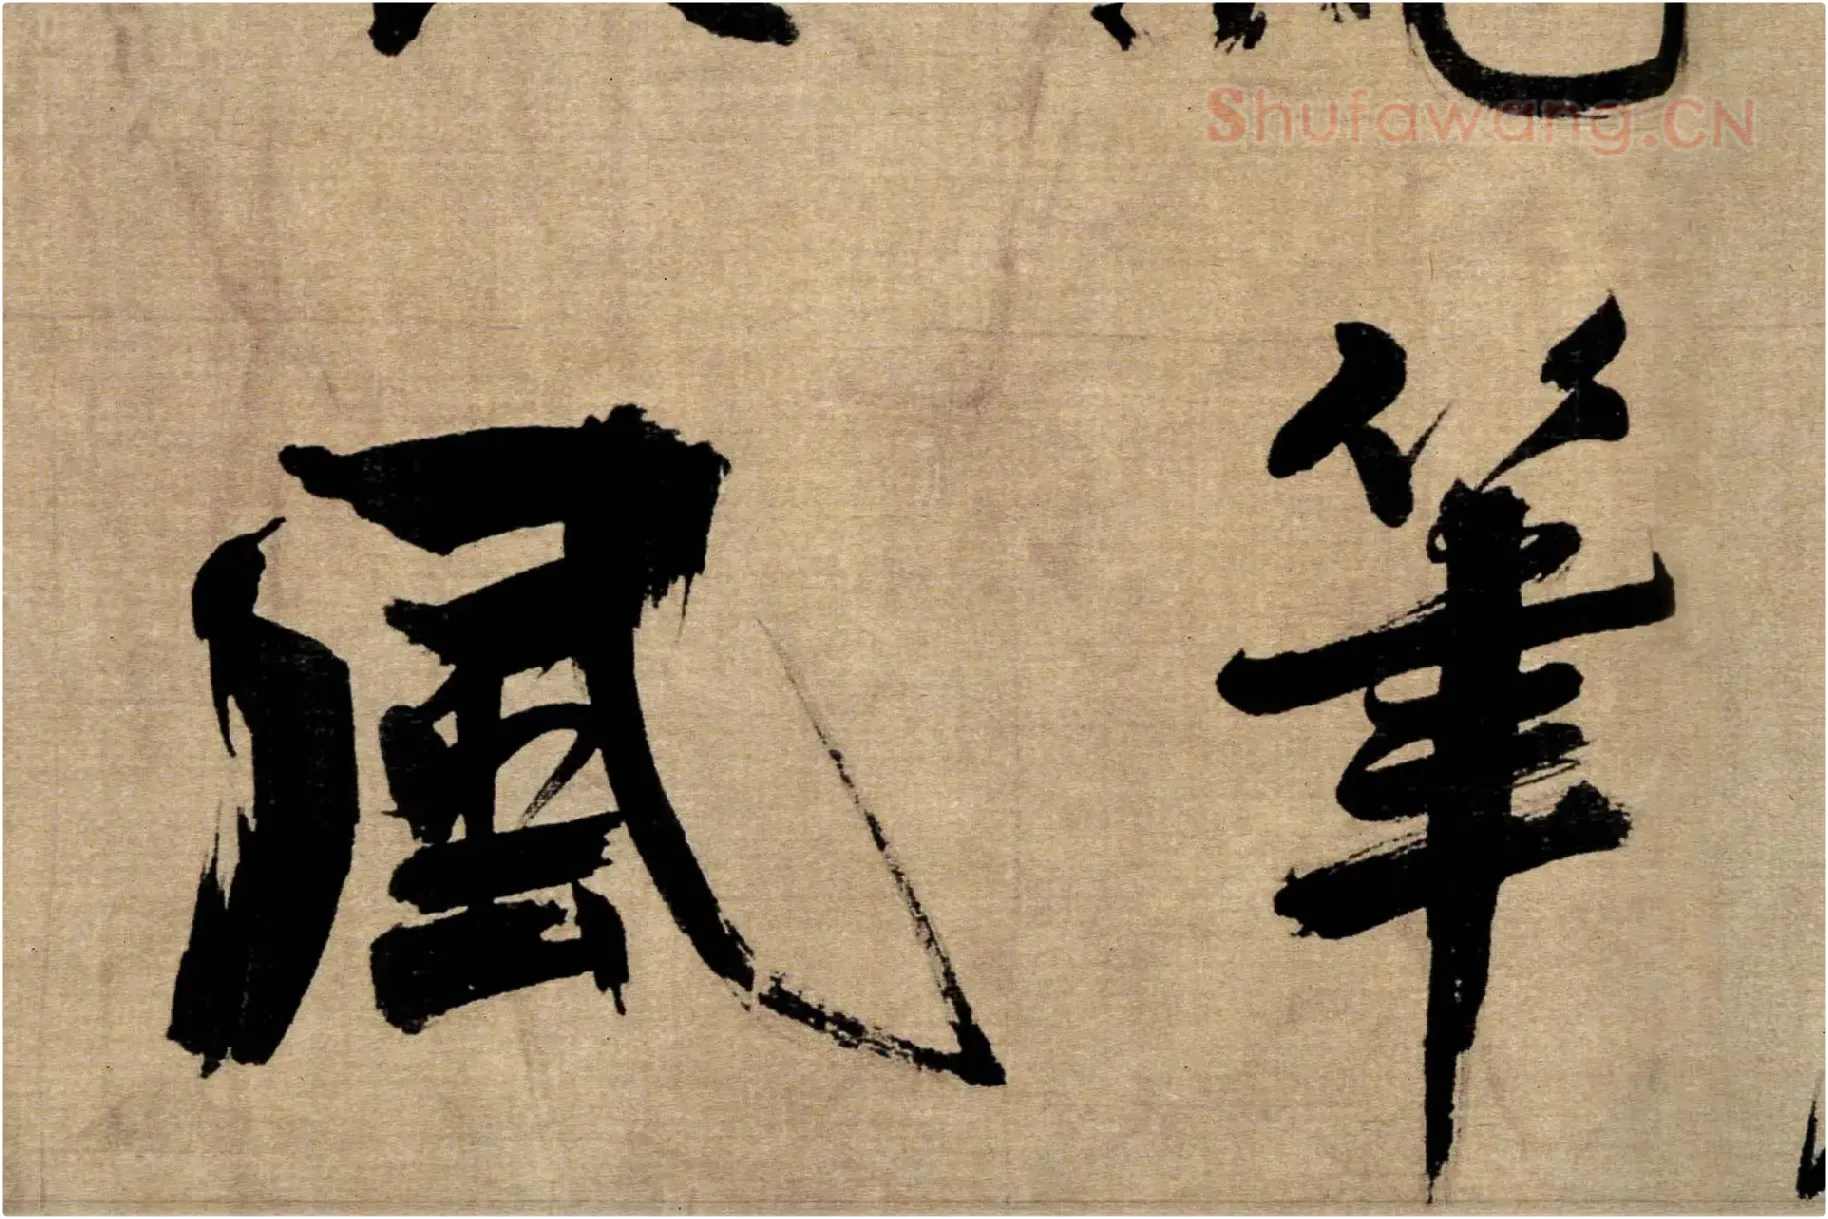 筆
風
Shufawang.CN